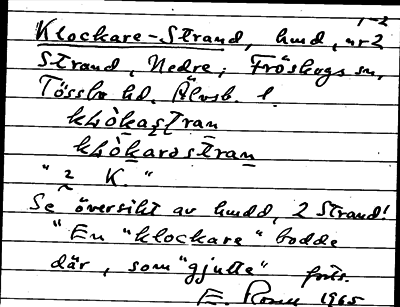 1-2
Klockare-Strand, hmd, nr 2
Strand, Nedre; Fröskogs sn,
Tössbo hd. Älvsb. l.
klòkastran
klòkarostran
" 2 K. "
Se översikt av hmdd, 2 Strand!
"En "klockare" bodde
där, som "gjutte" forts.
E. 1965